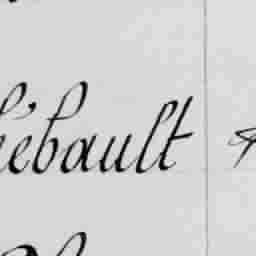 hébault